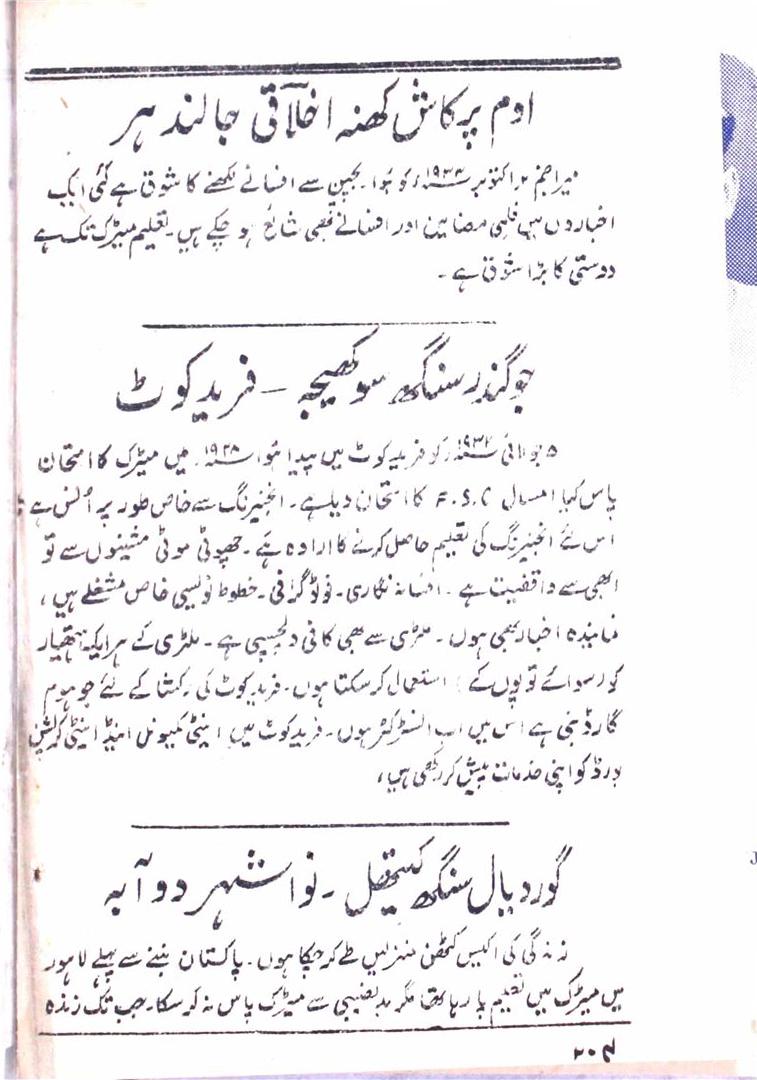 اوم پرکاش کھنہ اخلاقی جالندہر
میرا جنم ۲ اکتوبر ۱۹۳۳ء کو ہُوا۔ بچپن سے افسانے لکھنے کا شوق ہے کئی ایک
اخباروں میں فلمی مضامین اور افسانے بھی شائع ہو چکے ہیں۔ تعلیم میٹرک تک ہے
دوستی کا بڑا شوق ہے۔
جوگندر سنگھ سوکھیجہ – فرید کوٹ
۵ جولائی ۱۹۳۲ء کو فرید کوٹ میں پیدا ہُوا ۱۹۴۸ء میں میٹرک کا امتحان
پاس کیا امسال F.S.C کا امتحان دیا ہے۔ انجنیرنگ سے خاص طور پر اُنس ہے
اس لئے انجنیرنگ کی تعلیم حاصل کرنے کا ارادہ ہے۔ چھوٹی موٹی مشینوں سے تو
ابھی سے واقفیت ہے۔ افسانہ نگاری۔ فوٹو گرافی۔ خطوط نویسی خاص مشغلے ہیں،
نمایندہ اخبار بھی ہوں۔ ملڑی سے بھی کافی دلچسپی ہے۔ ملڑی کے ہر ایک ہتھیار
کو (سوائے توپوں کے) استعمال کر سکتا ہوں۔ فرید کوٹ کی رکھشا کے لئے جو ہوم
گارڈ بنی ہے اس میں اب انسٹرکٹر ہوں۔ فرید کوٹ میں اینٹی کمیونل اینڈ اینٹی کرپشن
بورڈ کو اپنی خدمات پیش کر رکھی ہیں،
گوردیال سنگھ کیتھل۔ نواشہر دوآبہ
زندگی کی اکیس کٹھن منزلیں طے کر چکا ہوں۔ پاکستان بننے سے پہلے لاہور
میں میٹرک میں تعلیم پا رہا تھا مگر بدنصیبی سے میٹرک پاس نہ کر سکا۔ جب تک زندہ
۲۰۴